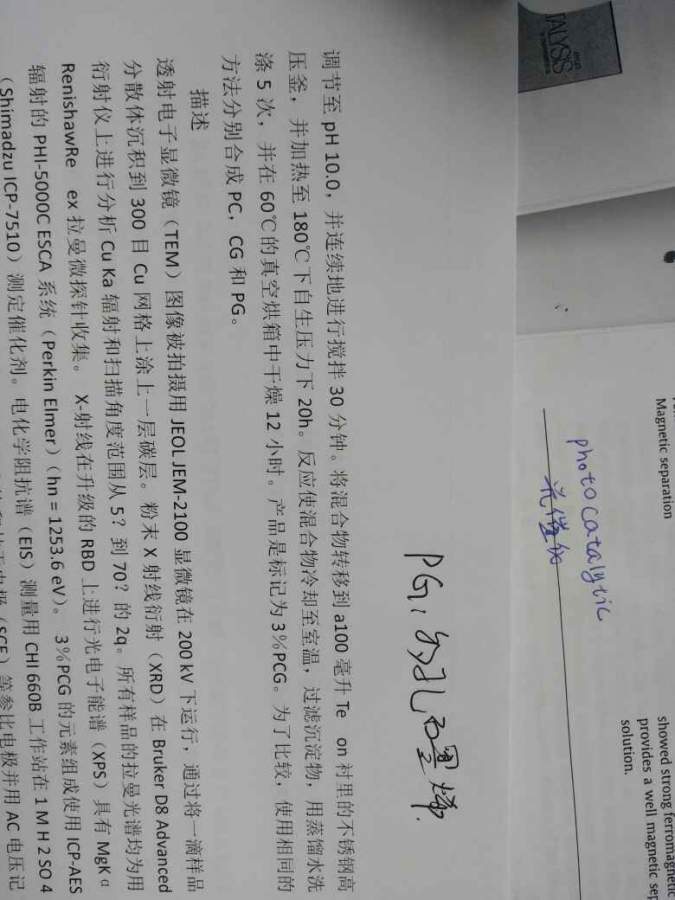 调节至 pH 10.0，并连续地进行搅拌 30 分钟。将混合物转移到 a100 毫升 Te on 衬里的不锈钢高
压釜，并加热至 180℃下自生压力下 20h。反应使混合物冷却至室温，过滤沉淀物，用蒸馏水洗
涤 5 次，并在 60℃的真空烘箱中干燥 12 小时。产品是标记为 3%PCG。为了比较，使用相同的
方法分别合成 PC，CG 和 PG。
描述
透射电子显微镜（TEM）图像被拍摄用 JEOL JEM-2100 显微镜在 200 kV 下运行，通过将一滴样品
分散体沉积到 300 目 Cu 网格上涂上一层碳层。粉末 X 射线衍射（XRD）在 Bruker D8 Advanced
衍射仪上进行分析 Cu Ka 辐射和扫描角度范围从 5？到 70？的 2q。所有样品的拉曼光谱均为用
RenishawRe ex 拉曼微探针收集。 X-射线在升级的 RBD 上进行光电子能谱（XPS）具有 MgKα
辐射的 PHI-5000C ESCA 系统（Perkin Elmer）（hn = 1253.6 eV）。 3%PCG 的元素组成使用 ICP-AES
（Shimadzu ICP-7510）测定催化剂。电化学阻抗谱（EIS）测量用 CHI 660B 工作站在 1 M H 2 SO 4
（SCE）等参比电极并用 AC 电压记
PG，多孔石墨烯
photocatalytic
光催化
Magnetic separation
showed strong ferromagnetic
provides a well magnetic sep
solution.
TALYSIS